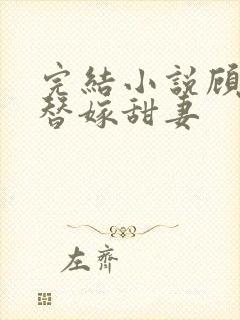 完結小說顾
替嫁甜妻
左齊